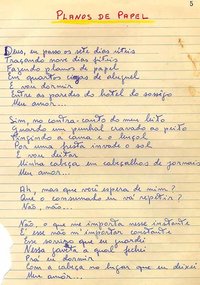 5
PLANOS DE PAPEL
Deus, eu passo os sete dias úteis
Traçando nove dias fúteis
Fazendo planos de papel
Em quartos cegos de aluguel
E vou dormir
Entre as paredes do hotel do sossego
Meu amor...
Sim, no contra-canto do meu leito
Guardo um punhal cravado ao peito
Tingindo a cama e o lençol
Por uma fresta invade o sol
E vou deitar
Minha cabeça em cabeçalhos de jornais
Meu amor...
Ah, mas que você espera de mim?
Que o consumado eu vá repetir?
Não, não...
Não, o que me importa nesse instante
É esse não m'importar constante
Esse sossego que eu guardei
Nessa gaveta a qual fechei
Pra eu dormir
Com a cabeça no lugar que eu deixei
Meu amor...